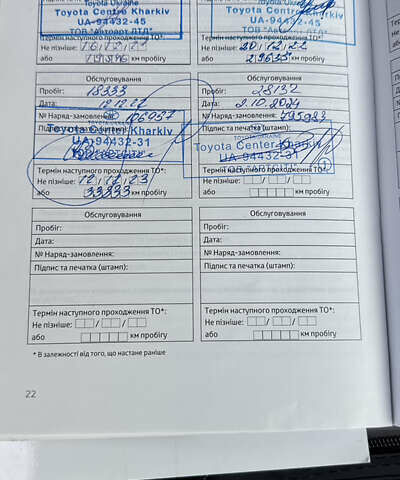 Toyota Ukraine
Toyota Centre Kharkiv
UA-94432-45
ТОВ "Автоарт ЛТД"
Термін наступного проходження ТО*:
Не пізніше: 16/12/22
або км пробігу
Toyota Centre Kharkiv
UA-94432-45
ТОВ "Автоарт ЛТД"
Термін наступного проходження ТО*:
Не пізніше: 20/12/22
або 29635 км пробігу
Обслуговування
Пробіг: 18333
Дата: 12.12.22
№ Наряд-замовлення: 106937
TOYOTA UKRAINE
Toyota Centre Kharkiv
UA-94432-31
Термін наступного проходження ТО*:
Не пізніше: 12/12/23
або 33333 км пробігу
Обслуговування
Пробіг: 28132
Дата: 2.10.2024
№ Наряд-замовлення:
Підпис та печатка (штамп):
TOYOTA UKRAINE
Toyota Center Kharkiv
UA-94432-31
Термін наступного проходження ТО*:
Не пізніше: / /
або км пробігу
Обслуговування
Пробіг:
Дата:
№ Наряд-замовлення:
Підпис та печатка (штамп):
Термін наступного проходження ТО*:
Не пізніше: / /
або км пробігу
Обслуговування
Пробіг:
Дата:
№ Наряд-замовлення:
Підпис та печатка (штамп):
Термін наступного проходження ТО*:
Не пізніше: / /
або км пробігу
* В залежності від того, що настане раніше
22